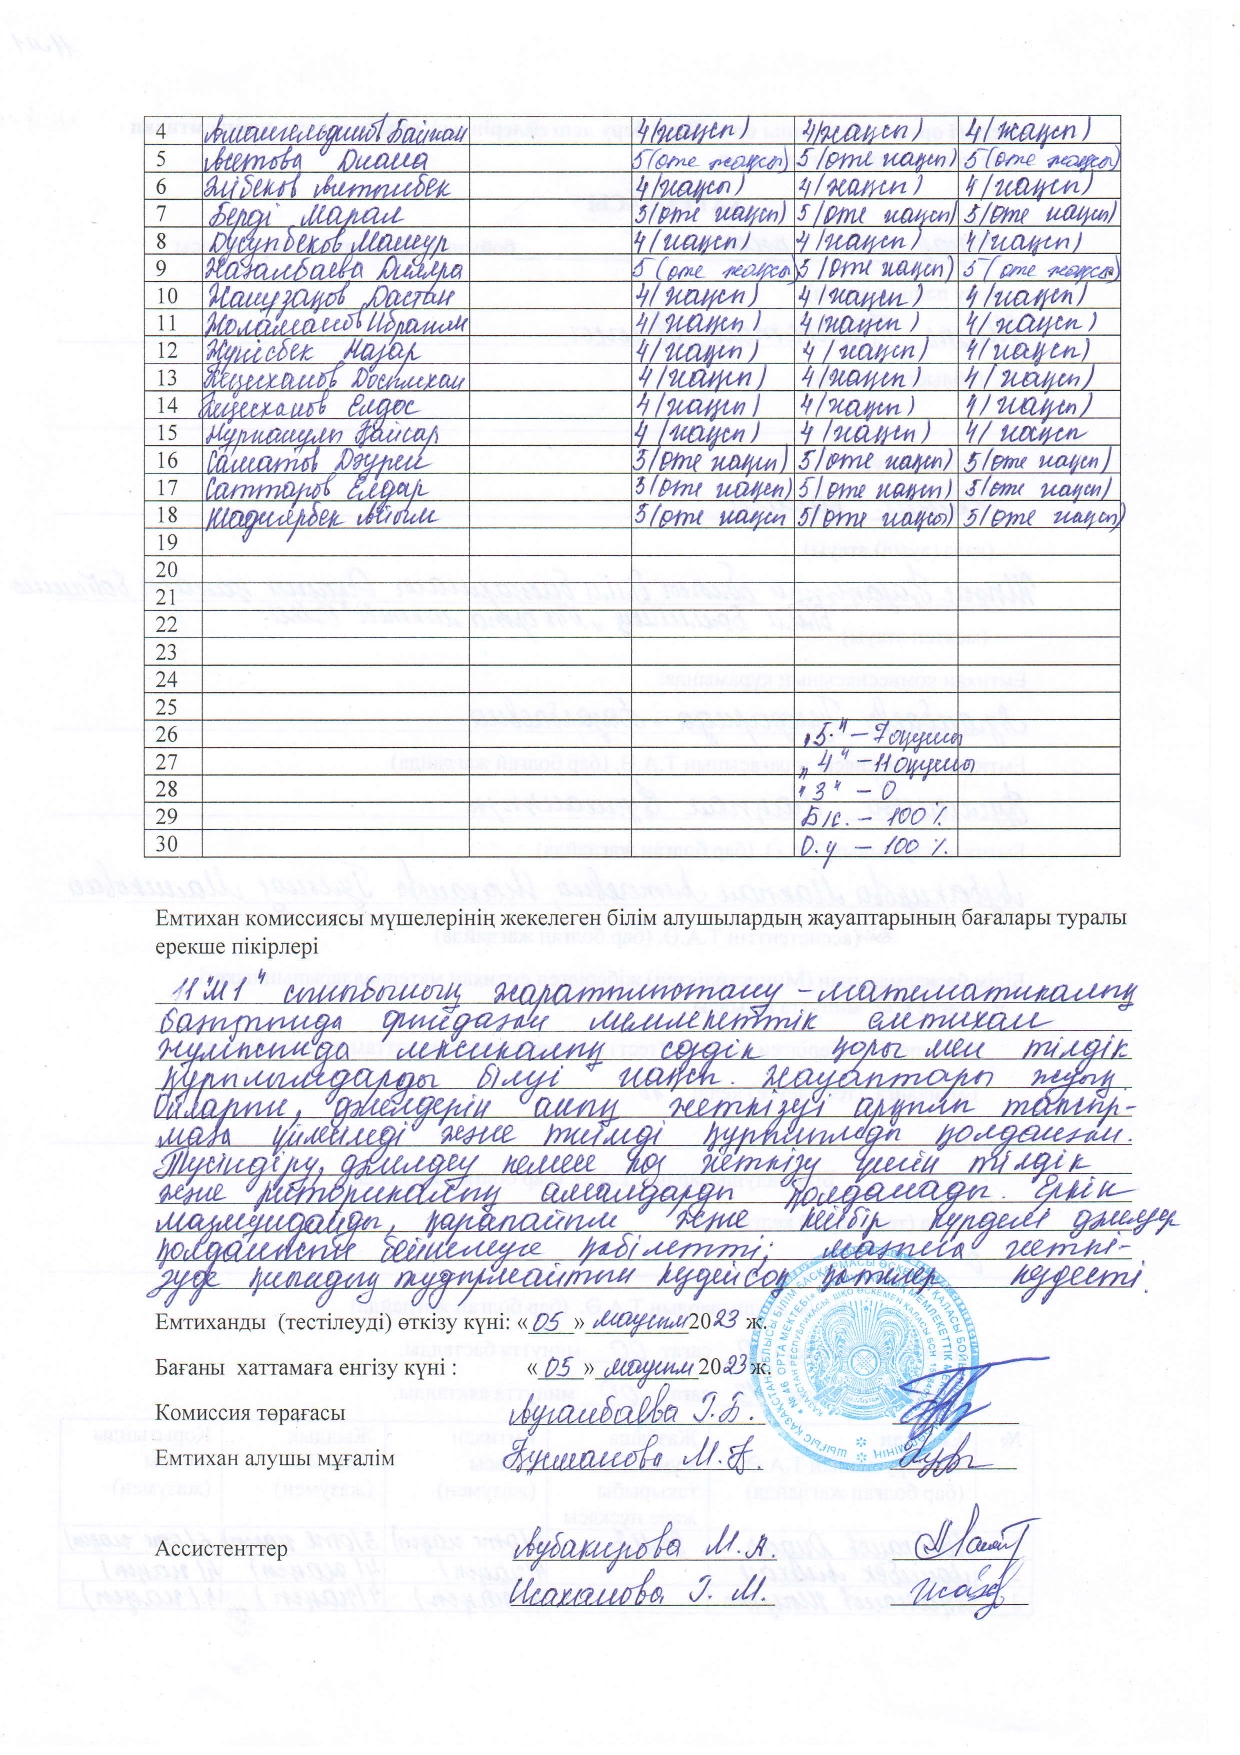 4 Амангельдинов Байжан 4 (жақсы) 4 (жақсы) 4 (жақсы)
5 Асетова Диана 5 (өте жақсы) 5 (өте жақсы) 5 (өте жақсы)
6 Әлібеков 4 (жақсы) 4 (жақсы) 4 (жақсы)
7 Берді Марал 5 (өте жақсы) 5 (өте жақсы) 5 (өте жақсы)
8 Дүсүпбеков Мансур 4 (жақсы) 4 (жақсы) 4 (жақсы)
9 Жазалбаева Диляра 5 (өте жақсы) 5 (өте жақсы) 5 (өте жақсы)
10 Дастан 4 (жақсы) 4 (жақсы) 4 (жақсы)
11 Жоламанов Ибрагим 4 (жақсы) 4 (жақсы) 4 (жақсы)
12 Жүнісбек Назар 4 (жақсы) 4 (жақсы) 4 (жақсы)
13 Кеңесханов Досымхан 4 (жақсы) 4 (жақсы) 4 (жақсы)
14 Кеңесханов Елдос 4 (жақсы) 4 (жақсы) 4 (жақсы)
15 Қайсар 4 (жақсы) 4 (жақсы) 4 (жақсы
16 Саматов Дәурен 5 (өте жақсы) 5 (өте жақсы) 5 (өте жақсы)
17 Саттаров Елдар 5 (өте жақсы) 5 (өте жақсы) 5 (өте жақсы)
18 Шадиярбек Айым 5 (өте жақсы 5 (өте жақсы) 5 (өте жақсы)
19
20
21
22
23
24
25
26 „5" – 7 оқушы
27 „4" – 11 оқушы
28 „3" – 0
29 Б/с. – 100 %
30 О.ү – 100 %.
Емтихан комиссиясы мүшелерінің жекелеген білім алушылардың жауаптарының бағалары туралы
ерекше пікірлері
11 "М1" сыныбының жаратылыстану – математикалық
бағытында өткізген мемлекеттік емтихан
жұмысында лексикалық сөздік қоры мен тілдік
құрылымдарды білуі жақсы. Жауаптары жуық.
Ойларын, дәлелдерін анық жеткізуі арқылы тапсыр-
маға үйлесімді және тиімді құрылымды қолданған.
Түсіндіру, дәлелдеу немесе ой жеткізу үшін тілдік
және риторикалық амалдарды қолданады. Еркін
мазмұндайды, қарапайым және кейбір күрделі дәлелдер
қолданысын бейнелеуге қабілетті; мағына жеткі-
зуде қиындық тудырмайтын кездейсоқ қателер кездесті.
Емтиханды (тестілеуді) өткізу күні: «05» маусым 2023 ж.
Бағаны хаттамаға енгізу күні : «05» маусым 2023 ж.
Комиссия төрағасы Ауганбаева Г.Б.
Емтихан алушы мұғалім Құсманова М.Қ.
Ассистенттер Аубакирова М.А.
Исаханова Г.М.